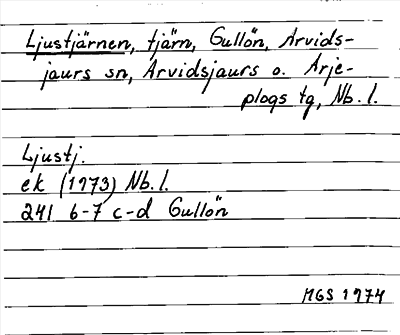 Ljustjärnen, tjärn, Gullön, Arvids-
jaurs sn, Arvidsjaurs o. Arje-
plogs tg, Nb. l.
Ljustj.
ek (1973) Nb. l.
241 6-7 c-d Gullön
MGS 1974